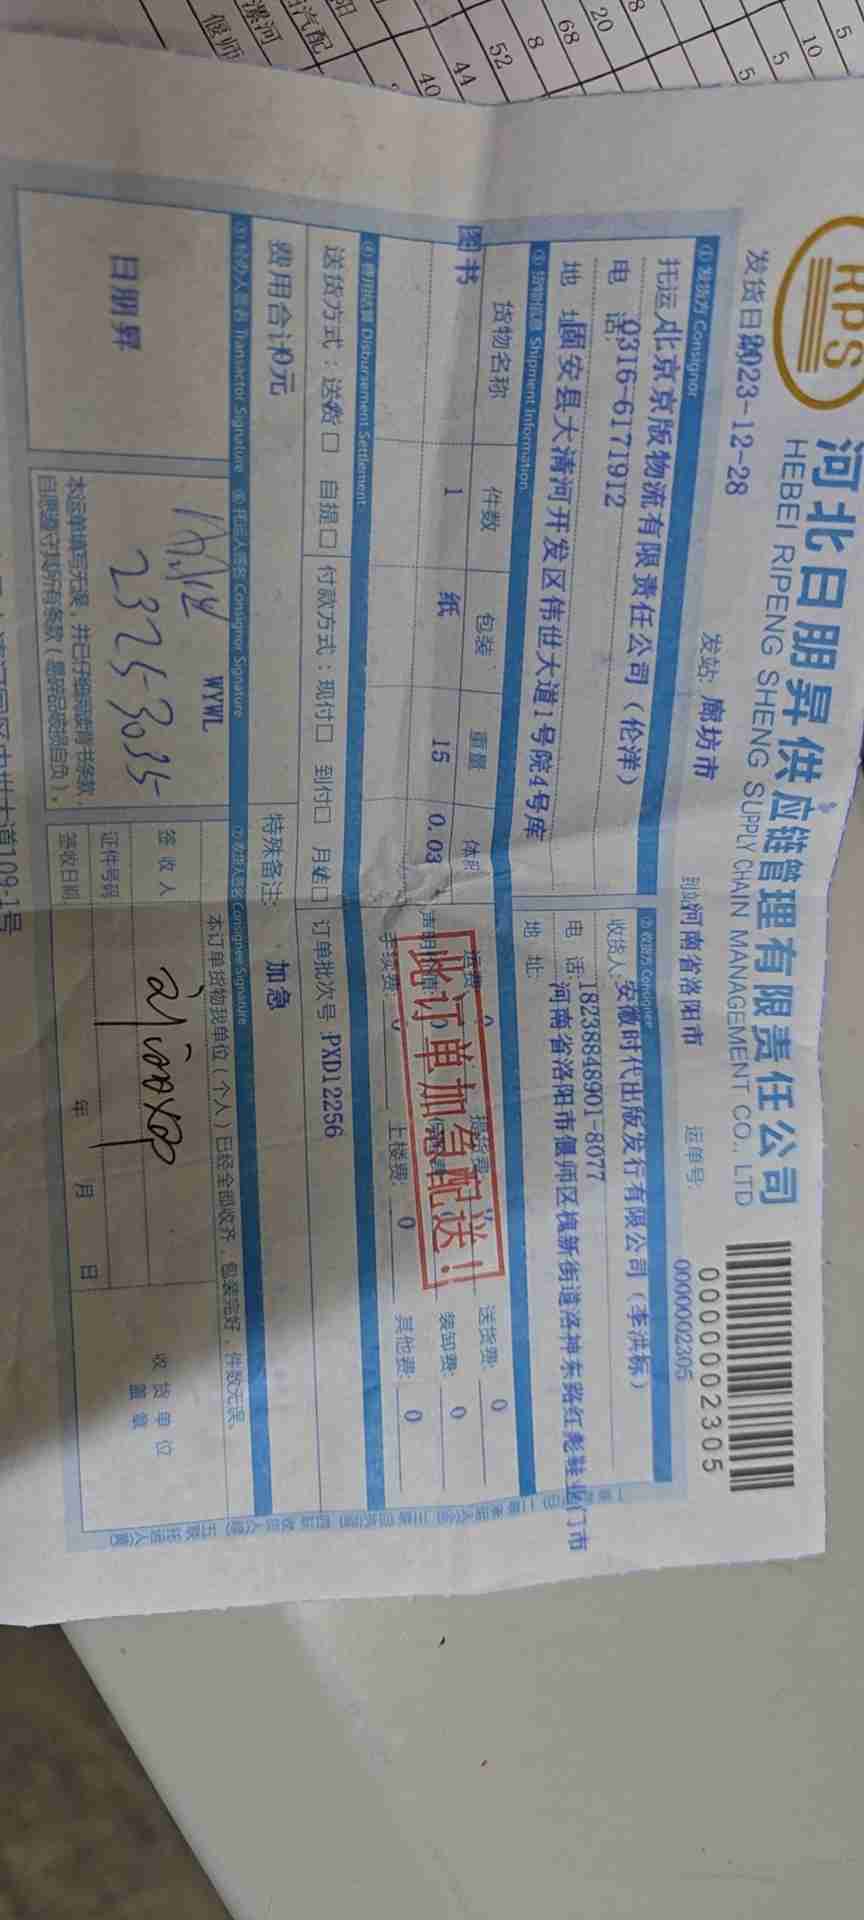 RPS
河北日朋昇供应链管理有限责任公司
HEBEI RIPENG SHENG SUPPLY CHAIN MANAGEMENT CO., LTD
0000002305
发货日期 2023-12-28 发站: 廊坊市 到站: 河南省洛阳市 运单号: 0000002305
① 发货方 Consignor ② 收货方 Consignee
托运人: 北京京版物流有限责任公司 (伦洋) 收货人: 安徽时代出版发行有限公司 (李洪标)
电 话: 0316-6171912 电 话: 18238848901-8077
地 址: 固安县大清河开发区伟世大道1号院4号库 地 址: 河南省洛阳市偃师区槐新街道洛神东路红彪鞋业门市
③ 货物信息 Shipment Information
货物名称 件数 包装 重量 体积 运费: 0 提货费: 送货费: 0
图书 1 纸 15 0.03 声明价值: 0 装卸费: 0
手续费: 0 上楼费: 0 其他费: 0
此订单加急配送!
④ 费用结算 Disbursement Settlement
送货方式: 送货□ 自提□ 付款方式: 现付□ 到付□ 月结□ 订单批次号: PXD12256
费用合计: 0元 特殊备注: 加急
⑤ 经办人签名 Transactor Signature ⑥ 托运人签名 Consignor Signature ⑦ 收货人签名 Consignee Signature
日朋昇
WYWL
2325-3035
本运单填写无误,并已仔细阅读背书条款,
自愿遵守其所有条款(易碎品破损自负)。
本订单货物我单位(个人)已经全部收齐,包装完好,件数无误。
签 收 人
证件号码
签收日期 年 月 日
收 货 单 位
盖 章
道109-1号
偃师
漯河
汽配
阳
40
44
52
8
68
20
8
5
5
10
5